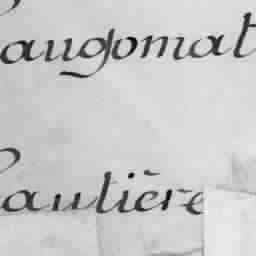 augomat
autière